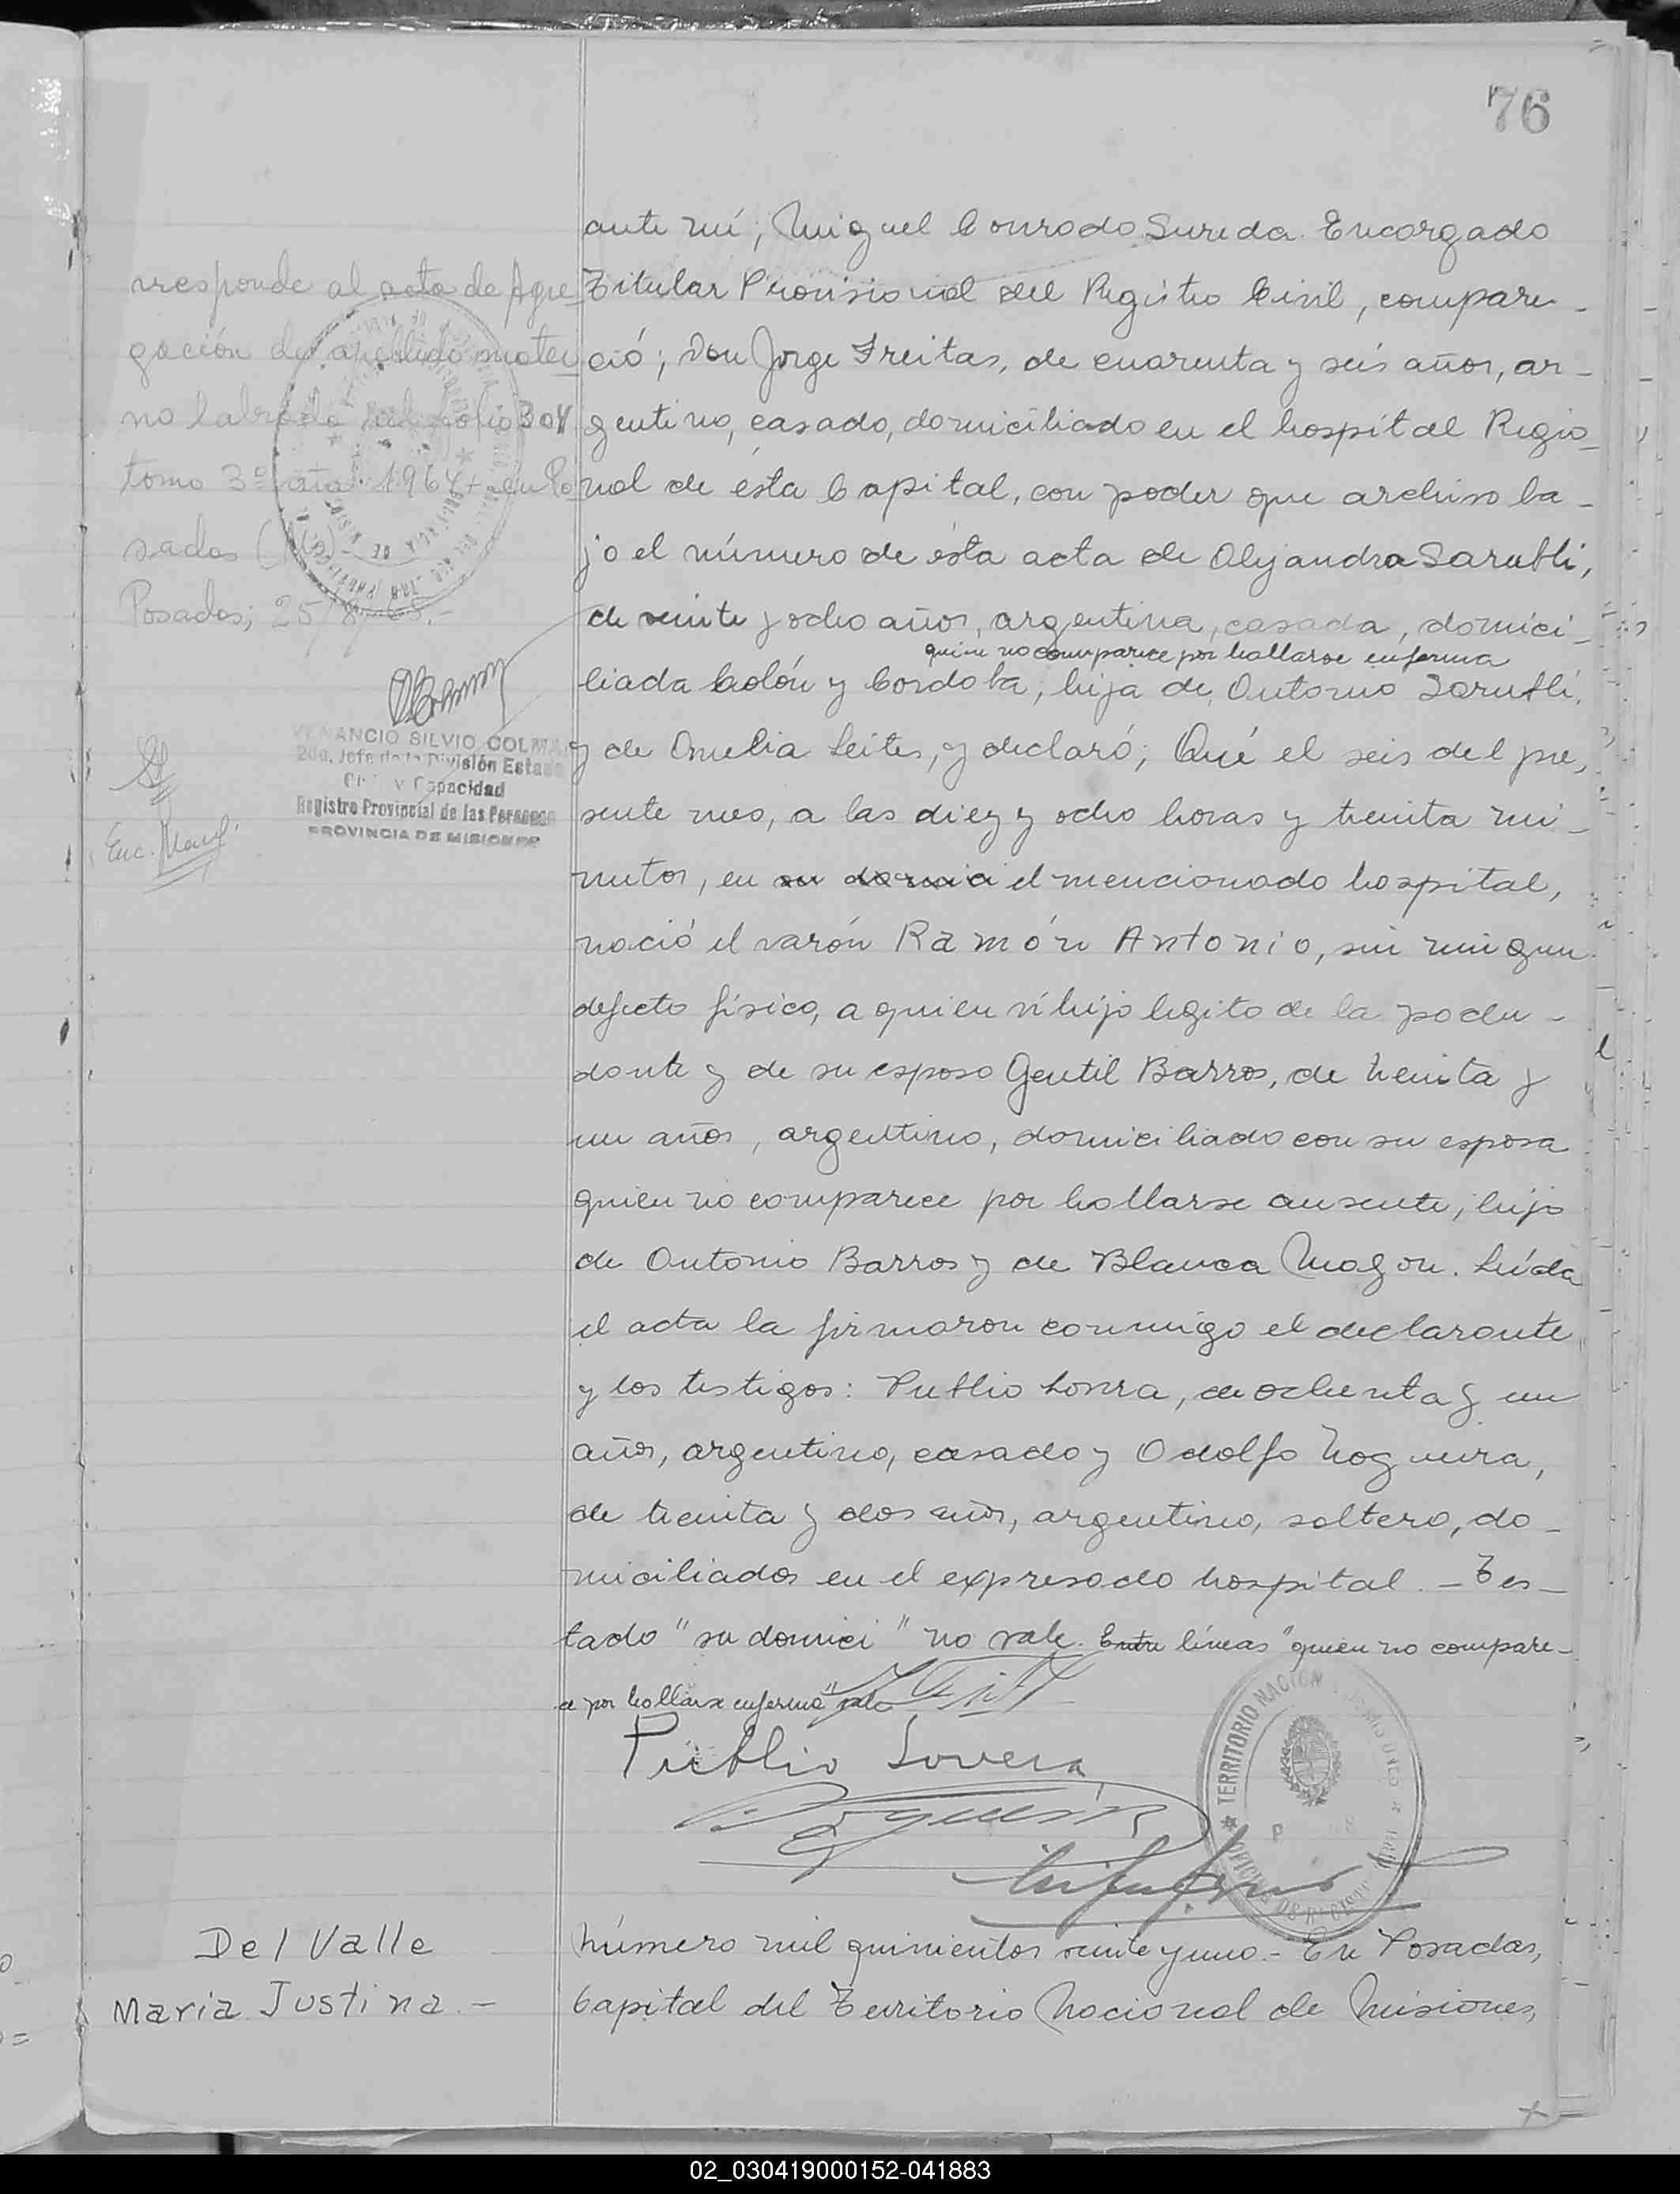 76
ante mí, Miguel Conrado Sureda Encargado
Titular Provisional del Registro Civil, compare-
ció; Don Jorge Freitas, de cuarenta y seis años, ar-
gentino, casado, domiciliado en el hospital Regio-
nal de ésta Capital, con poder que archivo ba-
jo el número de ésta acta de Alejandra Sarubbi,
de veinte y ocho años, argentina, casada, domici-
quien no comparece por hallarse enferma
liada Colón y Cordoba, hija de Antonio Sarubbi,
y de Amelia Leites, y declaró; Qué el seis del pre,
sente mes, a las diez y ocho horas y treinta mi-
nutos, en su domici el mencionado hospital,
nació el varón Ramón Antonio, sin ningun
defecto físico, a quien ví hijo legito de la poder-
dante y de su esposo Gentil Barros, de treinta y
un años, argentino, domiciliado con su esposa
quien no comparece por hallarse ausente, hijo
de Antonio Barros y de Blanca Magon. Leída
el acta la firmaron conmigo el declarante
y los testigos: Publio Lovera, de ochenta y un
años, argentino, casado y Adolfo Noguera,
de treinta y dos años, argentino, soltero, do-
miciliados en el expresado hospital. - Tes-
tado "su domici" no vale. Entre líneas "quien no compare-
ce por hallarse enferma" vale
Publio Lovera
TERRITORIO NACION
rresponde al acta de Agre-
gación de apellido mater-
no labrada al folio 304
tomo 3º año 1964 en Po
sadas
Posadas; 25/8/65.-
VENANCIO SILVIO COLMA
2do. Jefe de la División Estado
Civil y Capacidad
Registro Provincial de las Personas
PROVINCIA DE MISIONES
Del Valle
Maria Justina.-
Número mil quinientos veinte y uno.- En Posadas,
Capital del Territorio Nacional de Misiones,
02_030419000152-041883